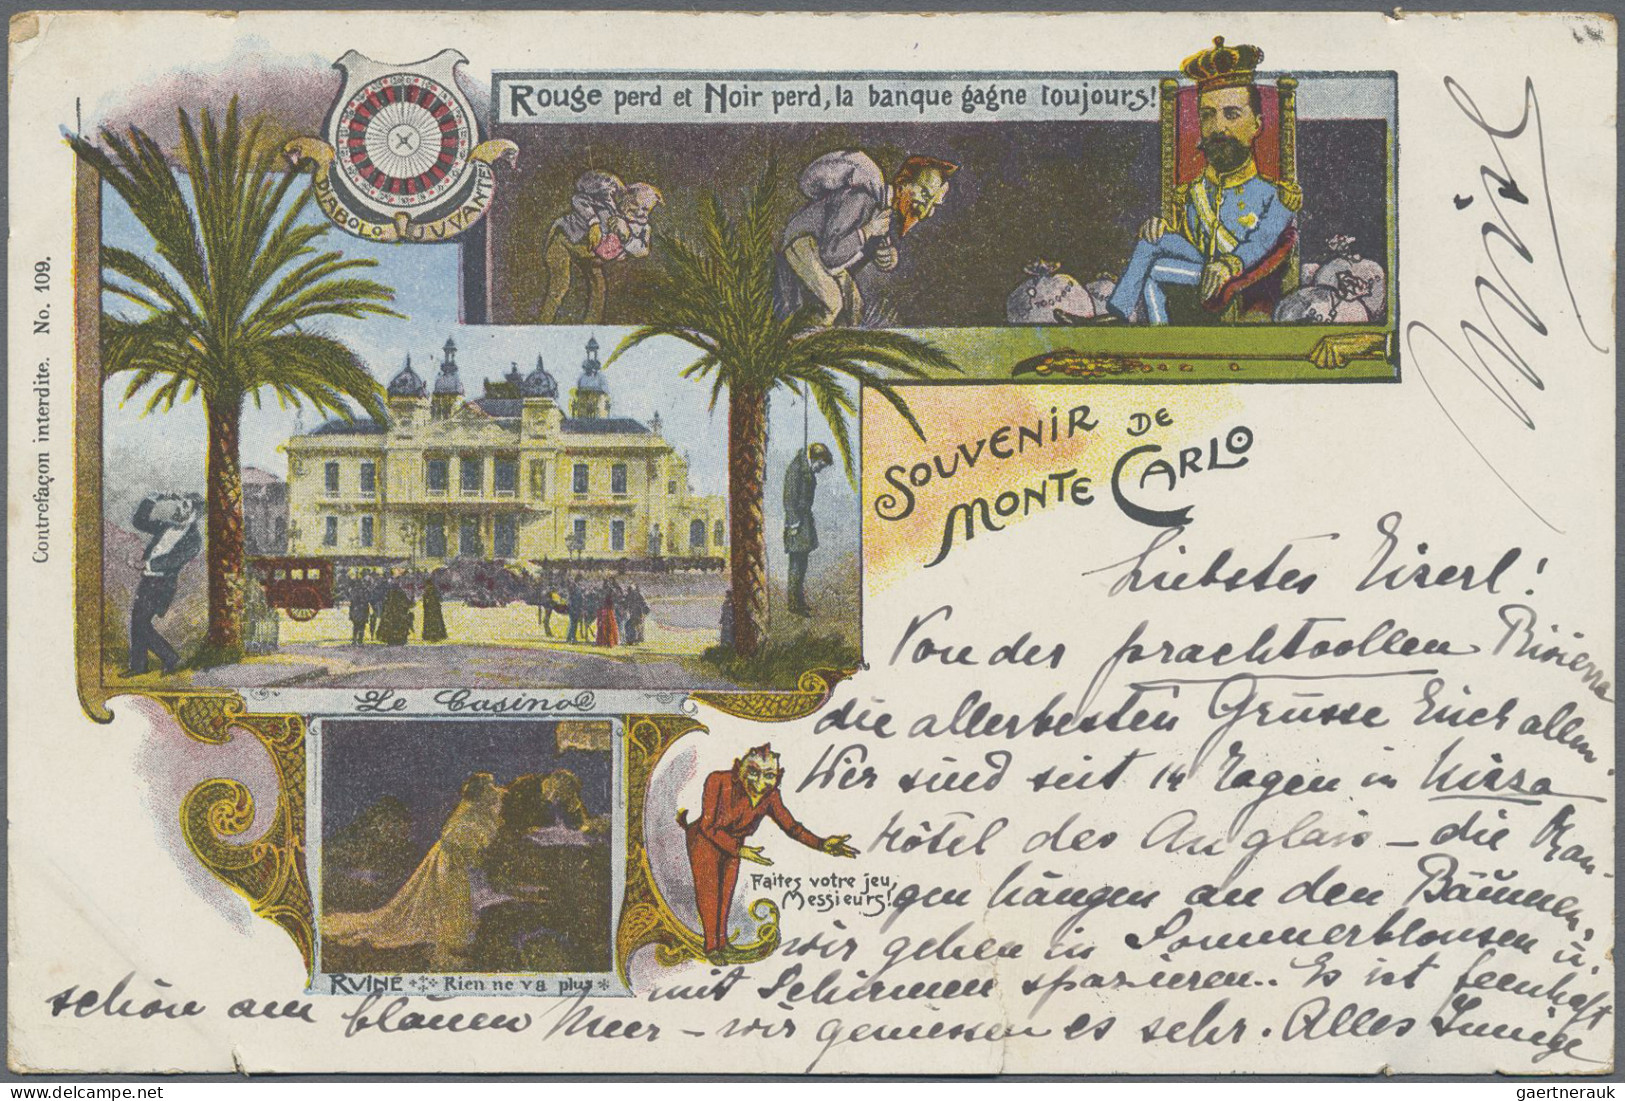 Rouge perd et Noir perd, la banque gagne toujours!
DIABOLO JUVANTE!
Contrefaçon interdite. No. 109.
SOUVENIR DE
MONTE CARLO
Le Casino
Faites votre jeu,
Messieurs!
RUINE Rien ne va plus
Liebstes Eiserl!
Von der prachtvollen Riviera
die allerbesten Grüsse Euch allen.
Wir sind seit 14 Tagen in Nizza
Hôtel des Anglais – die Oran-
gen hängen an den Bäumen,
wir gehen in Sommerblousen u.
mit Schirmen spazieren.. Es ist feenhaft
schön am blauen Meer – wir geniessen es sehr. Alles Innige